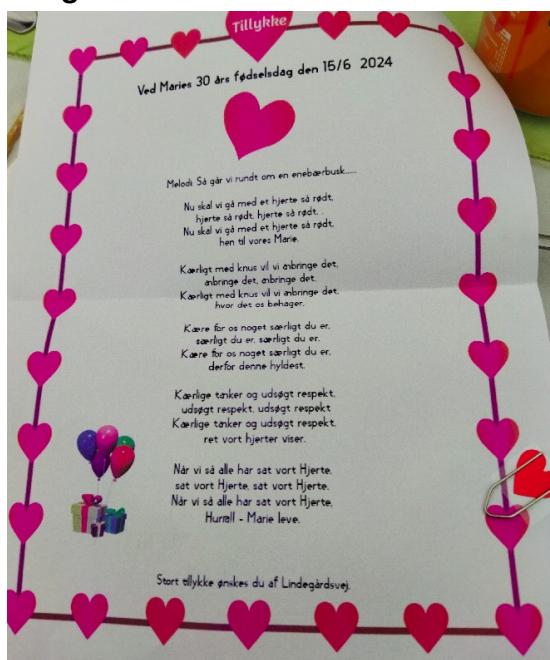 Tillykke
Ved Maries 30 års fødselsdag den 15/6 2024
Melodi: Så går vi rundt om en enebærbusk......
Nu skal vi gå med et hjerte så rødt,
hjerte så rødt, hjerte så rødt, .
Nu skal vi gå med et hjerte så rødt,
hen til vores Marie.
Kærligt med knus vil vi anbringe det,
anbringe det, anbringe det.
Kærligt med knus vil vi anbringe det,
hvor det os behager.
Kære for os noget særligt du er,
særligt du er, særligt du er.
Kære for os noget særligt du er,
derfor denne hyldest.
Kærlige tanker og udsøgt respekt,
udsøgt respekt, udsøgt respekt
Kærlige tanker og udsøgt respekt,
ret vort hjerter viser.
Når vi så alle har sat vort Hjerte,
sat vort Hjerte, sat vort Hjerte.
Når vi så alle har sat vort Hjerte,
Hurra!! - Marie leve.
Stort tillykke ønskes du af Lindegårdsvej.